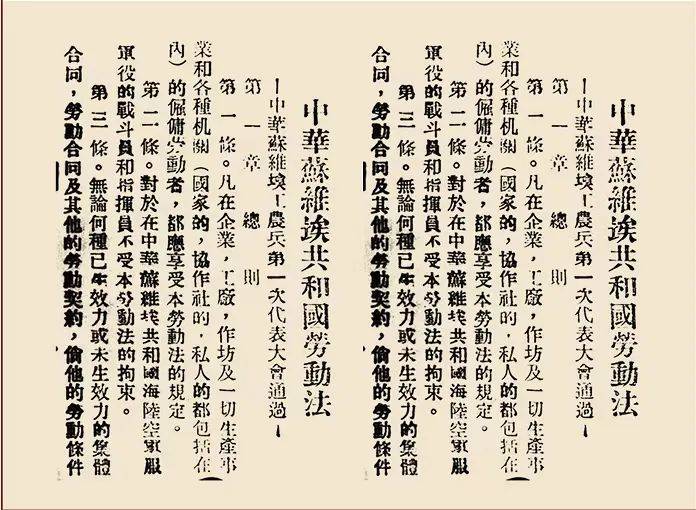 中華蘇維埃共和國勞動法
—中華蘇維埃工農兵第一次代表大會通過—
第一章 總則
第一條。凡在企業,工廠,作坊及一切生產事
業和各種机關(國家的,協作社的,私人的都包括在
內)的僱傭勞動者,都應享受本勞動法的規定。
第二條。對於在中華蘇維埃共和國海陸空軍服
軍役的戰斗員和指揮員不受本勞動法的拘束。
第三條。無論何種已生效力或未生效力的集體
合同,勞動合同及其他的勞動契約,倘他的勞動條件
中華蘇維埃共和國勞動法
—中華蘇維埃工農兵第一次代表大會通過—
第一章 總則
第一條。凡在企業,工廠,作坊及一切生產事
業和各種机關(國家的,協作社的,私人的都包括在
內)的僱傭勞動者,都應享受本勞動法的規定。
第二條。對於在中華蘇維埃共和國海陸空軍服
軍役的戰斗員和指揮員不受本勞動法的拘束。
第三條。無論何種已生效力或未生效力的集體
合同,勞動合同及其他的勞動契約,倘他的勞動條件